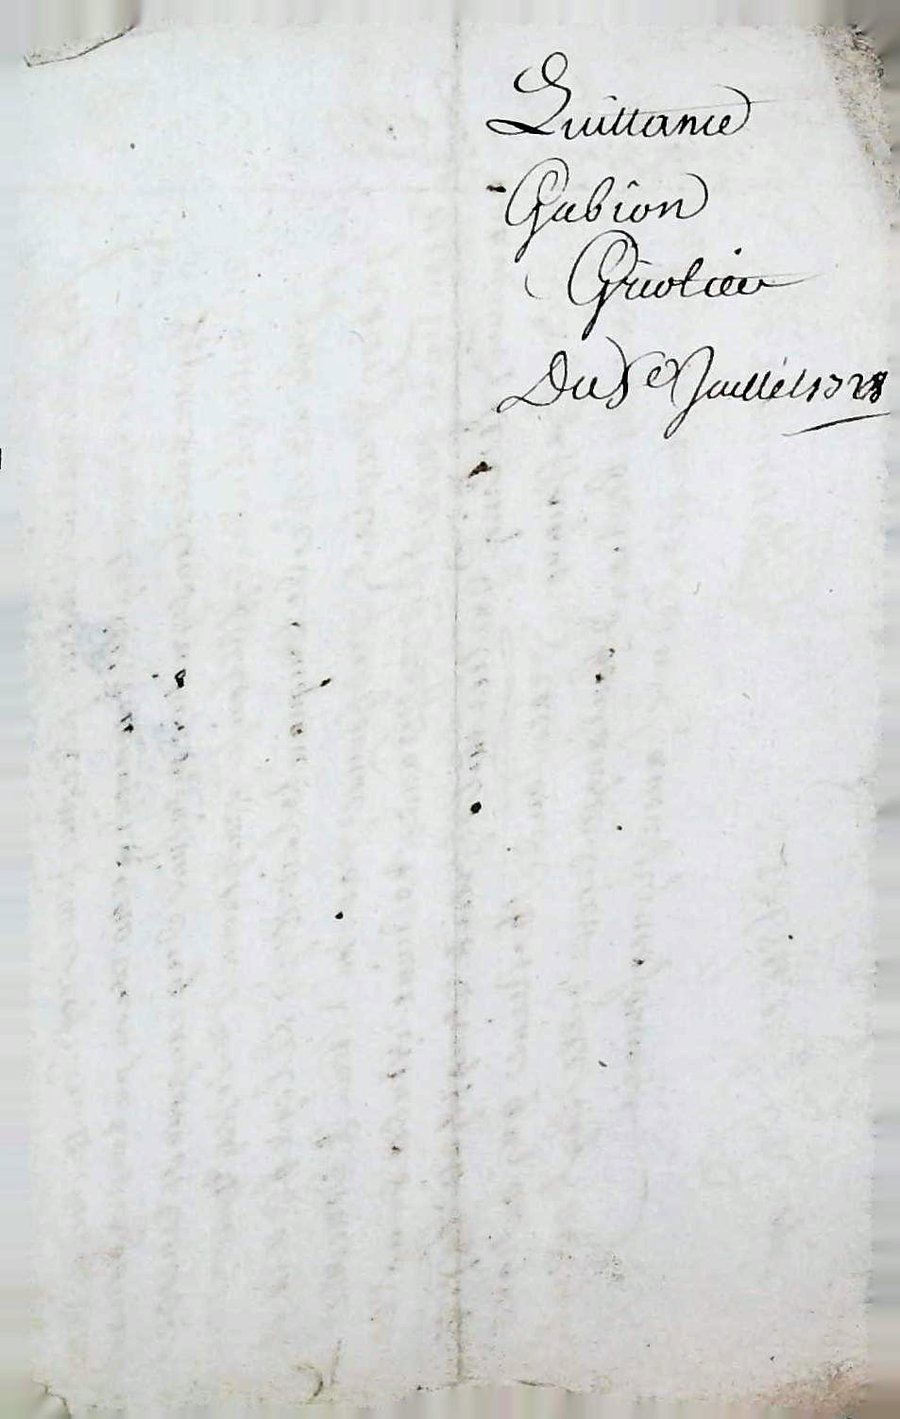 Quittance
Gabion
Griolier
Du 5e Juillet 1728